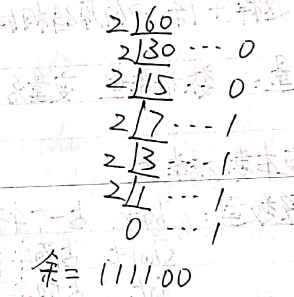 2|60
2|30 ··· 0
2|15 ·· 0
2|7 ··· 1
2|3 ··· 1
2|1 ··· 1
0 ··· 1
余= 111100